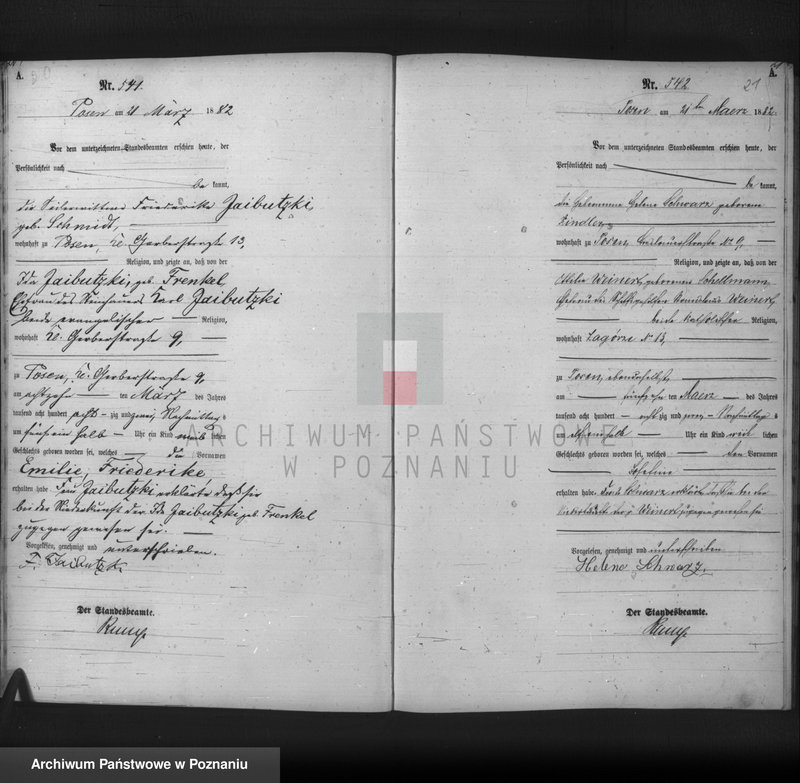 A.
Nr. 541.
Posen am 21 März 1882
Vor dem unterzeichneten Standesbeamten erschien heute, der
Persönlichkeit nach
be kannt,
die Seilerwittwe Friederike Jaibutzki,
geb. Schmidt,
wohnhaft zu Posen, kl. Gerberstraße 13,
Religion, und zeigte an, daß von der
Ida Jaibutzki, geb. Frenkel,
Ehefrau des Karl Jaibutzki
beide evangelischer Religion,
wohnhaft kl. Gerberstraße 9,
zu Posen, kl. Gerberstraße 9,
am achtzehn ten März des Jahres
tausend acht hundert acht zig und zwei Nachmittags
um fünf ein halb Uhr ein Kind weib lichen
Geschlechts geboren worden sei, welches die Vornamen
Emilie, Friederike
erhalten habe. Frau Jaibutzki erklärte daß sie
bei der Niederkunft der Ida Jaibutzki geb. Frenkel
zugegen gewesen sei.
Vorgelesen, genehmigt und unterschrieben.
F. Jaibutzki
Der Standesbeamte.
A.
21
Nr. 542
Posen am 21 ten Maerz 1882.
Vor dem unterzeichneten Standesbeamten erschien heute, der
Persönlichkeit nach
be kannt,
die Hebamme Helene Schwarz geborene
Zindler,
wohnhaft zu Posen, No 9,
Religion, und zeigte an, daß von der
Weinert, geborenen Schellmann
Ehefrau des Stanislaus Weinert
beide katholischer Religion,
wohnhaft
zu Posen, ebendaselbst,
am ten Maerz des Jahres
tausend acht hundert acht zig und zwei Vormittags
um Uhr ein Kind weib lichen
Geschlechts geboren worden sei, welches den Vornamen
erhalten habe. Schwarz erklärte daß sie bei der
Niederkunft der Weinert zugegen gewesen sei
Vorgelesen, genehmigt und unterschrieben
Helene Schwarz.
Der Standesbeamte.
ARCHIWUM PAŃSTWOWE
W POZNANIU
Archiwum Państwowe w Poznaniu